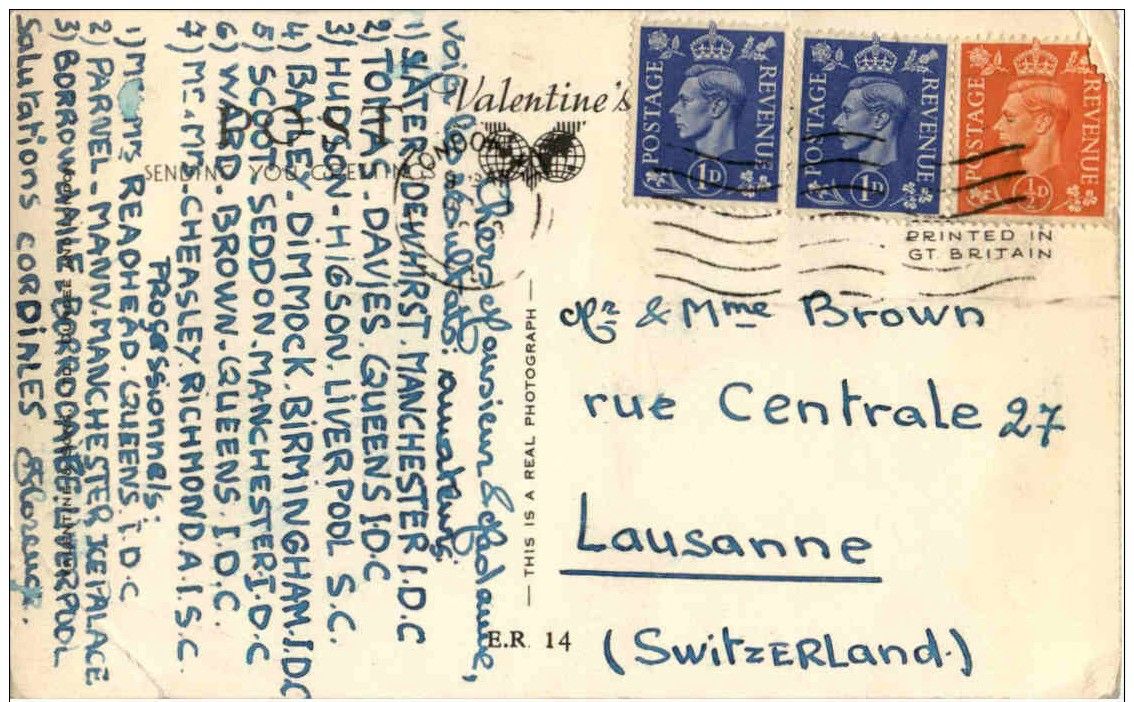 Valentine's
POST
SENDING YOU GREETINGS
LONDON
POSTAGE REVENUE
1D
POSTAGE REVENUE
1D
POSTAGE REVENUE
½D
PRINTED IN
GT. BRITAIN
Mr & Mme Brown
rue Centrale 27
Lausanne
(Switzerland.)
— THIS IS A REAL PHOTOGRAPH —
E.R. 14
Chers Monsieur & Madame,
voici les résultats: amateurs:
1) SLATER-DEWHIRST. MANCHESTER I.D.C
2) TOMAS-DAVIES. QUEENS I.D.C
3) HUDSON-HIGSON. LIVERPOOL S.C.
4) BAILEY-DIMMOCK. BIRMINGHAM. I.D.C
5) SCOOT-SEDDON. MANCHESTER I.D.C
6) WARD-BROWN-QUEENS. I.D.C.
7) Mr-Mrs-CHEASLEY. RICHMOND. A.I.S.C.
Professionnels:
1) Mr Mrs READHEAD. QUEENS. I.D.C
2) PARNEL-MANN. MANCHESTER ICE PALACE
3)
Salutations CORDIALES